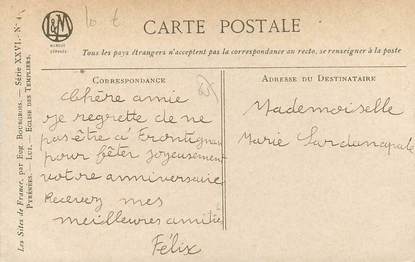 10 t
L&M
CARTE POSTALE
Tous les pays étrangers n'acceptent pas la correspondance au recto, se renseigner à la poste
CORRESPONDANCE
Chère amie
je regrette de ne
pas être à Frontignan
pour fêter joyeusement
votre anniversaire
Recevez mes
meilleures amitié
Félix
ADRESSE DU DESTINATAIRE
Mademoiselle
Marie Sardanapale
Les Sites de France, par Eug. Bourgeois. — Série XXVI. — N° 4
PYRÉNÉES. — LUZ. — EGLISE DES TEMPLIERS.